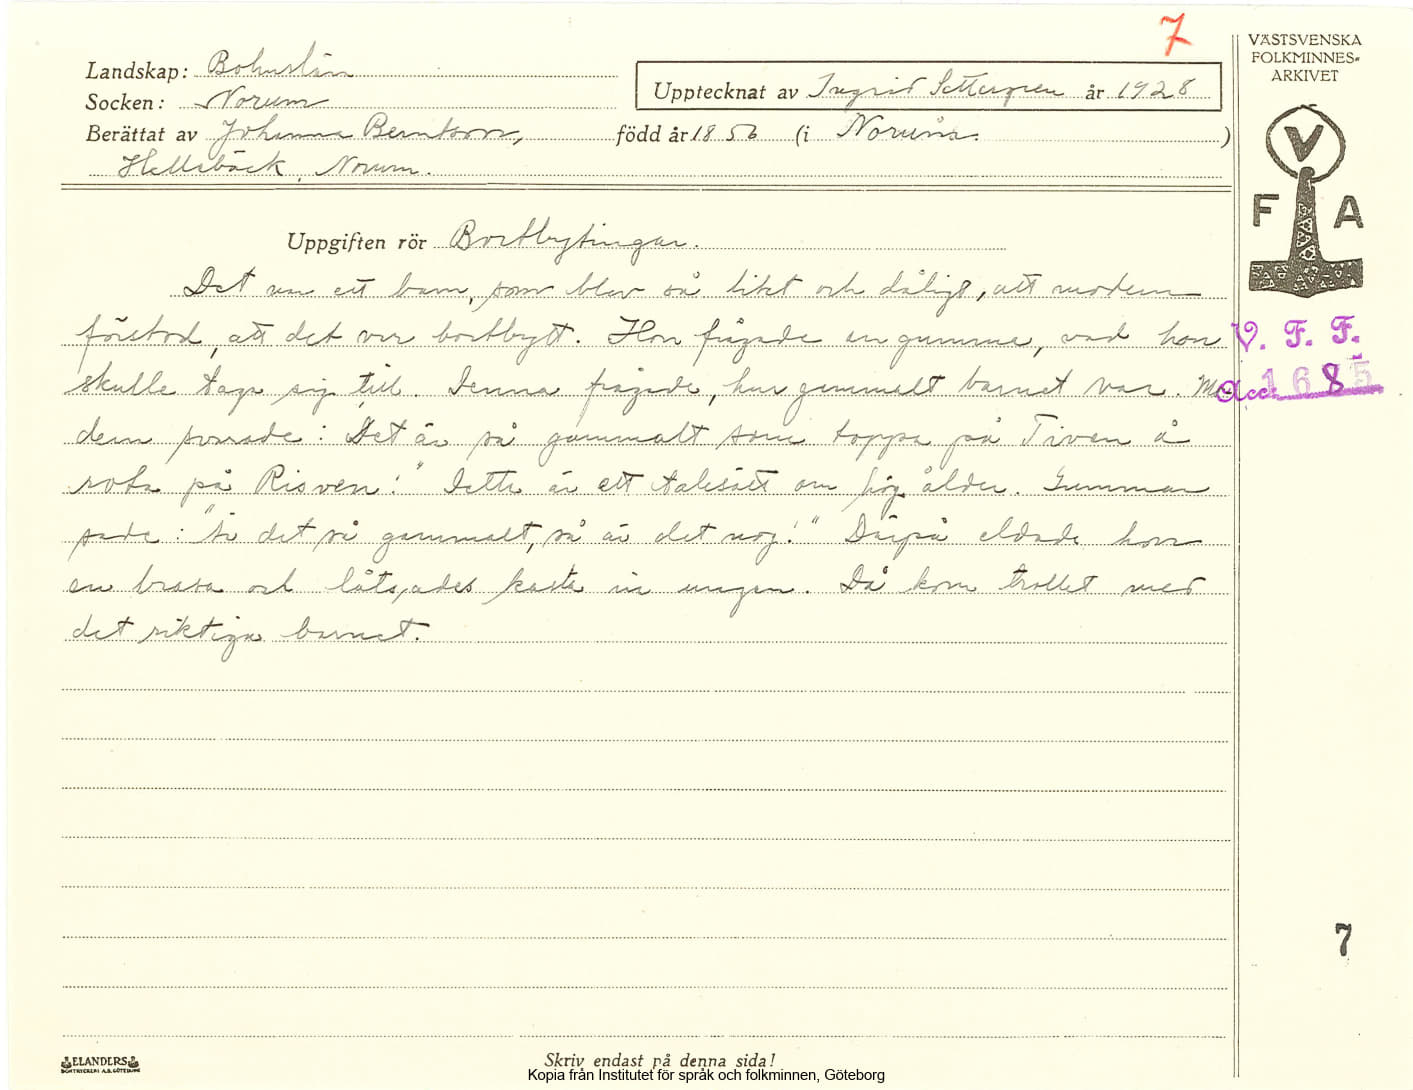 7
VÄSTSVENSKA
FOLKMINNES-
ARKIVET
Landskap: Bohuslän
Upptecknat av Ingrid Settergren år 1928
Socken: Norum
Berättat av Johanna Berntsson, född år 1856 (i Norum. )
Hellebäck, Norum.
V
F A
Uppgiften rör Bortbytingar.
Det var ett barn, som blev så litet och dåligt, att modern
förstod, att det var bortbytt. Hon frågade en gumma, vad hon
skulle taga sig till. Denna frågade, hur gammalt barnet var. Mo-
dern svarade: "Det är så gammalt som toppa på Tiven å
rota på Risven!" Detta är ett talesätt om hög ålder. Gumman
sade: "Är det så gammalt, så är det nog!" Därpå eldade hon
en brasa och låtsades kasta in ungen. Då kom trollet med
det riktiga barnet.
V. F. F.
Acc. 1685
7
ELANDERS
BOKTRYCKERI A.B. GÖTEBORG
Skriv endast på denna sida!
Kopia från Institutet för språk och folkminnen, Göteborg